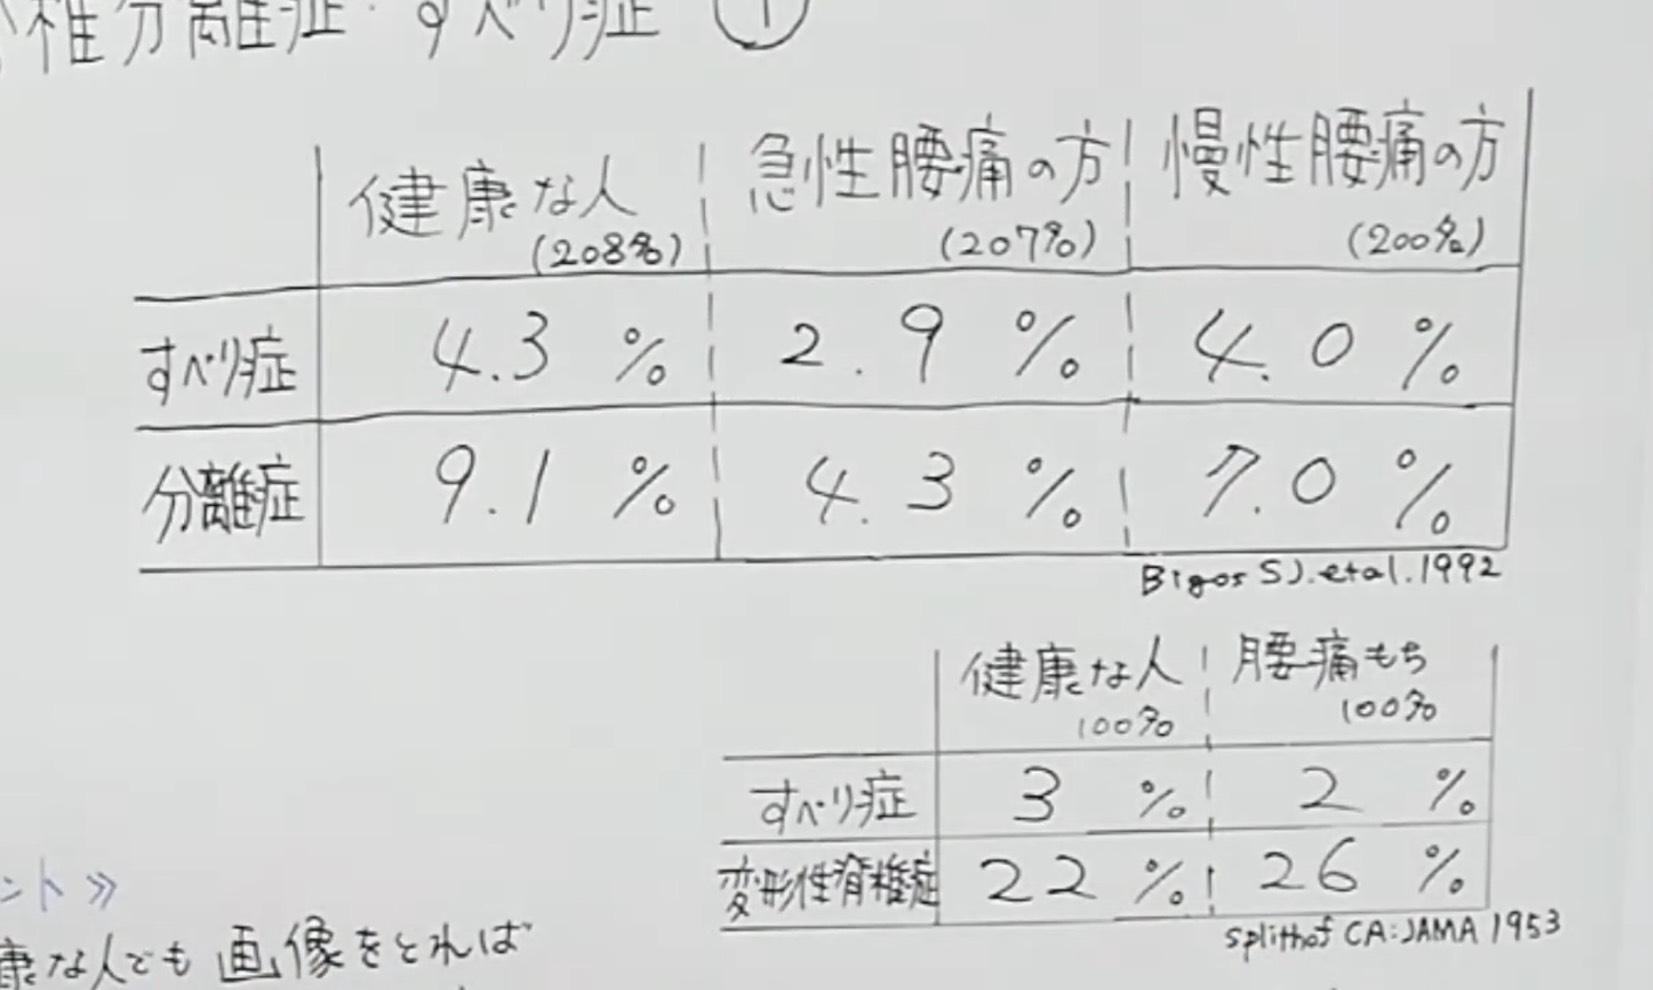 椎分離症・すべり症 ①
健康な人 急性腰痛の方 慢性腰痛の方
(208名) (207名) (200名)
すべり症 4.3 % 2.9 % 4.0 %
分離症 9.1 % 4.3 % 7.0 %
Bigos SJ. et al. 1992
健康な人 腰痛もち
100名 100名
すべり症 3 % 2 %
変形性脊椎症 22 % 26 %
splithof CA: JAMA 1953
ント》
康な人でも画像をとれば